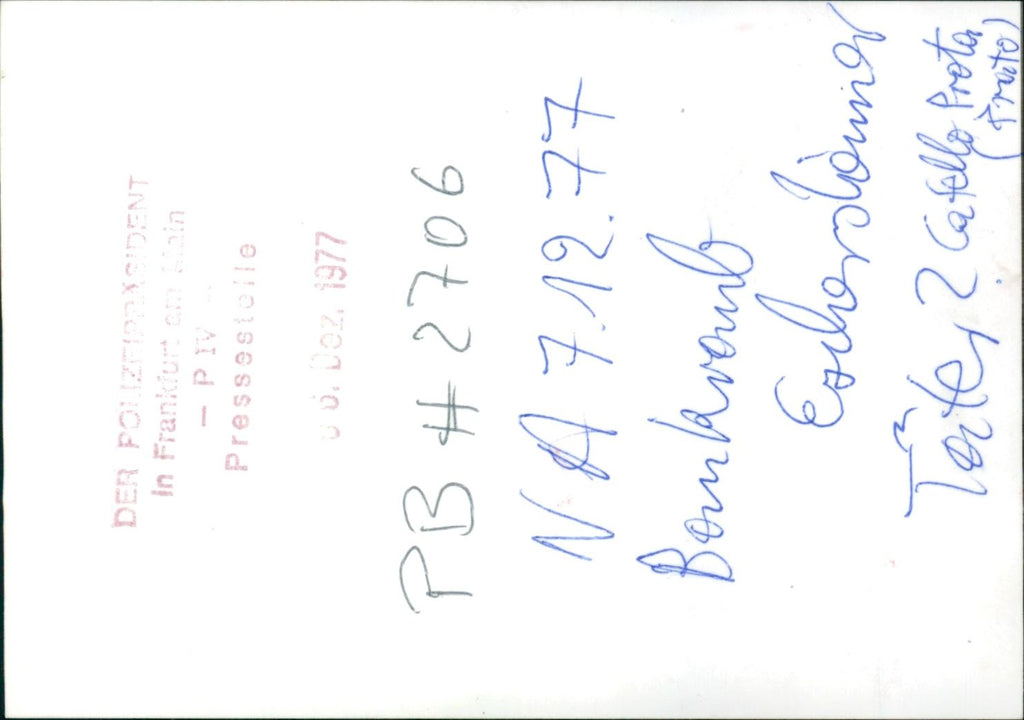 DER POLIZEIPRÄSIDENT
in Frankfurt am Main
— P IV —
Pressestelle
0 6. Dez. 1977
PB # 2706
NA 7.12.77
Bankraub
Eschersheimer
Täter 2 Catello Prota